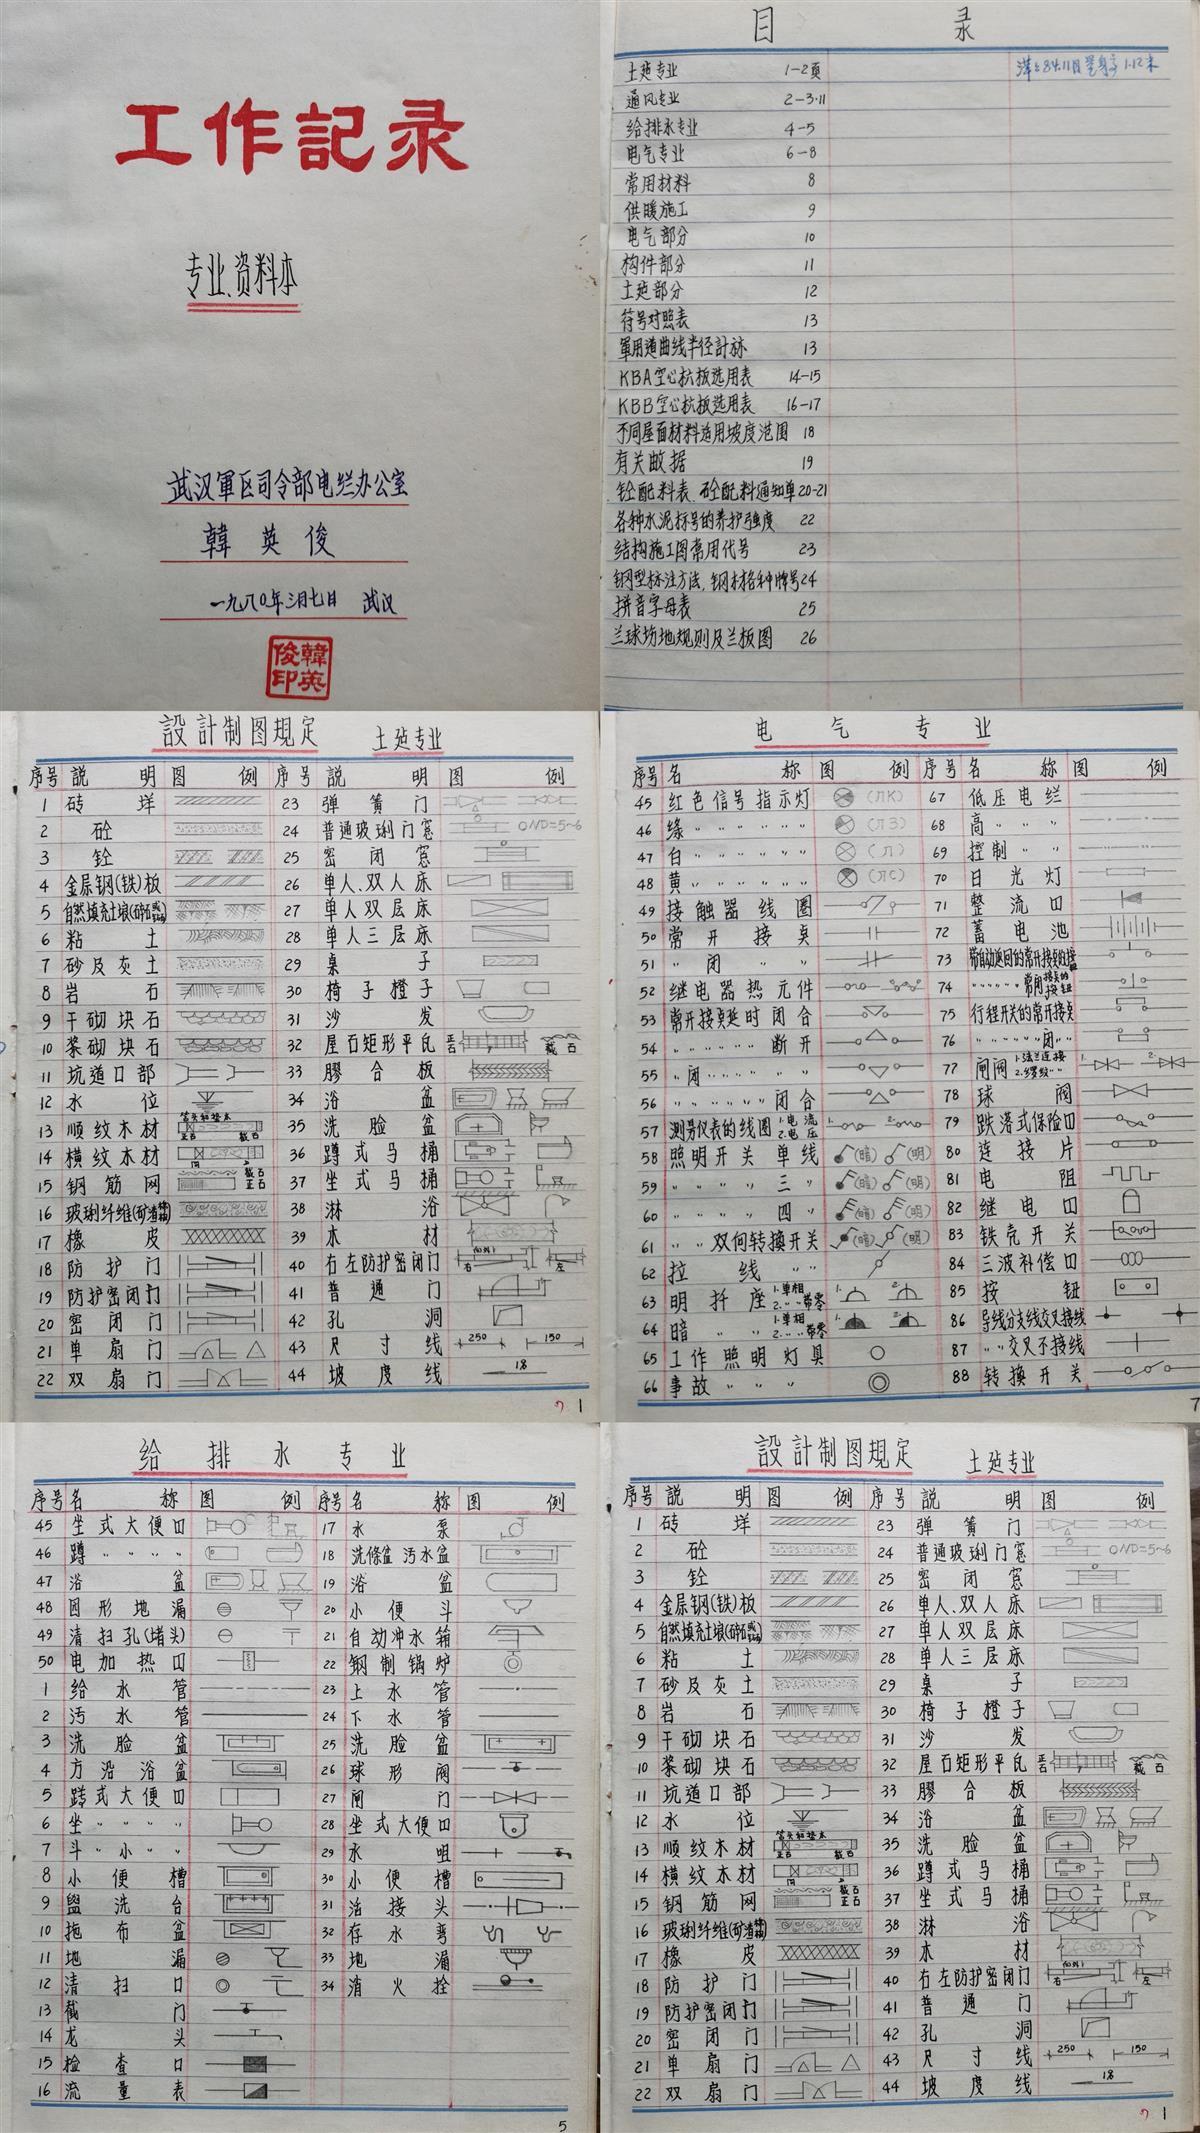 工作記录
专业资料本
武汉軍区司令部电缆办公室
韓英俊
一九八〇年三月七日 武汉
韓英
俊印
目 录
土建专业 1-2页
通风专业 2-3·11
给排水专业 4-5
电气专业 6-8
常用材料 8
供暖施工 9
电气部分 10
构件部分 11
土建部分 12
符号对照表 13
軍用道曲线半径計标 13
KBA空心楼板选用表 14-15
KBB空心楼板选用表 16-17
不同屋面材料适用坡度范围 18
有关数据 19
砼配料表、砼配料通知单 20-21
各种水泥标号的养护强度 22
结构施工图常用代号 23
钢型标注方法,钢材各种牌号 24
拼音字母表 25
兰球场地规则及兰板图 26
設計制图規定 土建专业
序号 説明 图例 序号 説明 图例
1 砖垟 23 弹簧门
2 砼 24 普通玻璃门窓 ND=5~6
3 铨 25 密闭窓
4 金层钢(铁)板 26 单人、双人床
5 自然填充土 27 单人双层床
6 粘土 28 单人三层床
7 砂及灰土 29 桌子
8 岩石 30 椅子橙子
9 干砌块石 31 沙发
10 浆砌块石 32 屋石矩形平瓦
11 坑道口部 33 膠合板
12 水位 34 浴盆
13 顺纹木材 35 洗脸盆
14 横纹木材 36 蹲式马桶
15 钢筋网 37 坐式马桶
16 玻璃纤维 38 淋浴
17 橡皮 39 木材
18 防护门 40 右左防护密闭门
19 防护密闭门 41 普通门
20 密闭门 42 孔洞
21 单扇门 43 尺寸线 250 150
22 双扇门 44 坡度线
1
电气专业
序号 名称 图例 序号 名称 图例
45 红色信号指示灯 (ЛК) 67 低压电缆
46 绿〃〃〃〃〃 (ЛЗ) 68 高〃〃〃
47 白〃〃〃〃〃 (Л) 69 控制〃〃
48 黄〃〃〃〃〃 (ЛС) 70 日光灯
49 接触器线圈 71 整流口
50 常开接桌 72 蓄电池
51 〃闭〃〃 73 带自动返回的常开接桌的按钮
52 继电器热元件 74 〃〃〃〃〃常闭接桌的按钮
53 常开接桌延时闭合 75 行程开关的常开接桌
54 〃〃〃〃〃断开 76 〃〃〃〃闭〃〃
55 〃闭〃〃〃〃 77 闸阀 1.法兰连接 2.螺纹〃〃
56 〃〃〃〃〃闭合 78 球阀
57 测另仪表的线圈 1.电流 2.电压 79 跌落式保险口
58 照明开关单线 (暗) (明) 80 连接片
59 〃〃〃三〃 (暗) (明) 81 电阻
60 〃〃〃四〃 (暗) (明) 82 继电口
61 〃〃双向转换开关 (暗) (明) 83 铁壳开关
62 拉线〃〃 84 三波补偿口
63 明扦座 1.单相 2.〃〃带零 85 按钮
64 暗〃〃 1.单相 2.〃〃带零 86 导线分支线交叉接线
65 工作照明灯具 87 〃〃交叉不接线
66 事故〃〃〃 88 转换开关
7
给排水专业
序号 名称 图例 序号 名称 图例
45 坐式大便口 17 水泵
46 蹲〃〃〃〃 18 洗滌盆 污水盆
47 浴盆 19 浴盆
48 园形地漏 20 小便斗
49 清扫孔(堵头) 21 自动冲水箱
50 电加热口 22 钢制锅炉
1 给水管 23 上水管
2 污水管 24 下水管
3 洗脸盆 25 洗脸盆
4 方沿浴盆 26 球形阀
5 蹲式大便口 27 闸门
6 坐〃〃〃〃 28 坐式大便口
7 斗〃小〃〃 29 水咀
8 小便槽 30 小便槽
9 盥洗台 31 活接头
10 拖布盆 32 存水弯
11 地漏 33 地漏
12 清扫口 34 消火拴
13 截门
14 龙头
15 检查口
16 流量表
5
設計制图規定 土建专业
序号 説明 图例 序号 説明 图例
1 砖垟 23 弹簧门
2 砼 24 普通玻璃门窓 ND=5~6
3 铨 25 密闭窓
4 金层钢(铁)板 26 单人、双人床
5 自然填充土 27 单人双层床
6 粘土 28 单人三层床
7 砂及灰土 29 桌子
8 岩石 30 椅子橙子
9 干砌块石 31 沙发
10 浆砌块石 32 屋石矩形平瓦
11 坑道口部 33 膠合板
12 水位 34 浴盆
13 顺纹木材 35 洗脸盆
14 横纹木材 36 蹲式马桶
15 钢筋网 37 坐式马桶
16 玻璃纤维 38 淋浴
17 橡皮 39 木材
18 防护门 40 右左防护密闭门
19 防护密闭门 41 普通门
20 密闭门 42 孔洞
21 单扇门 43 尺寸线 250 150
22 双扇门 44 坡度线
1